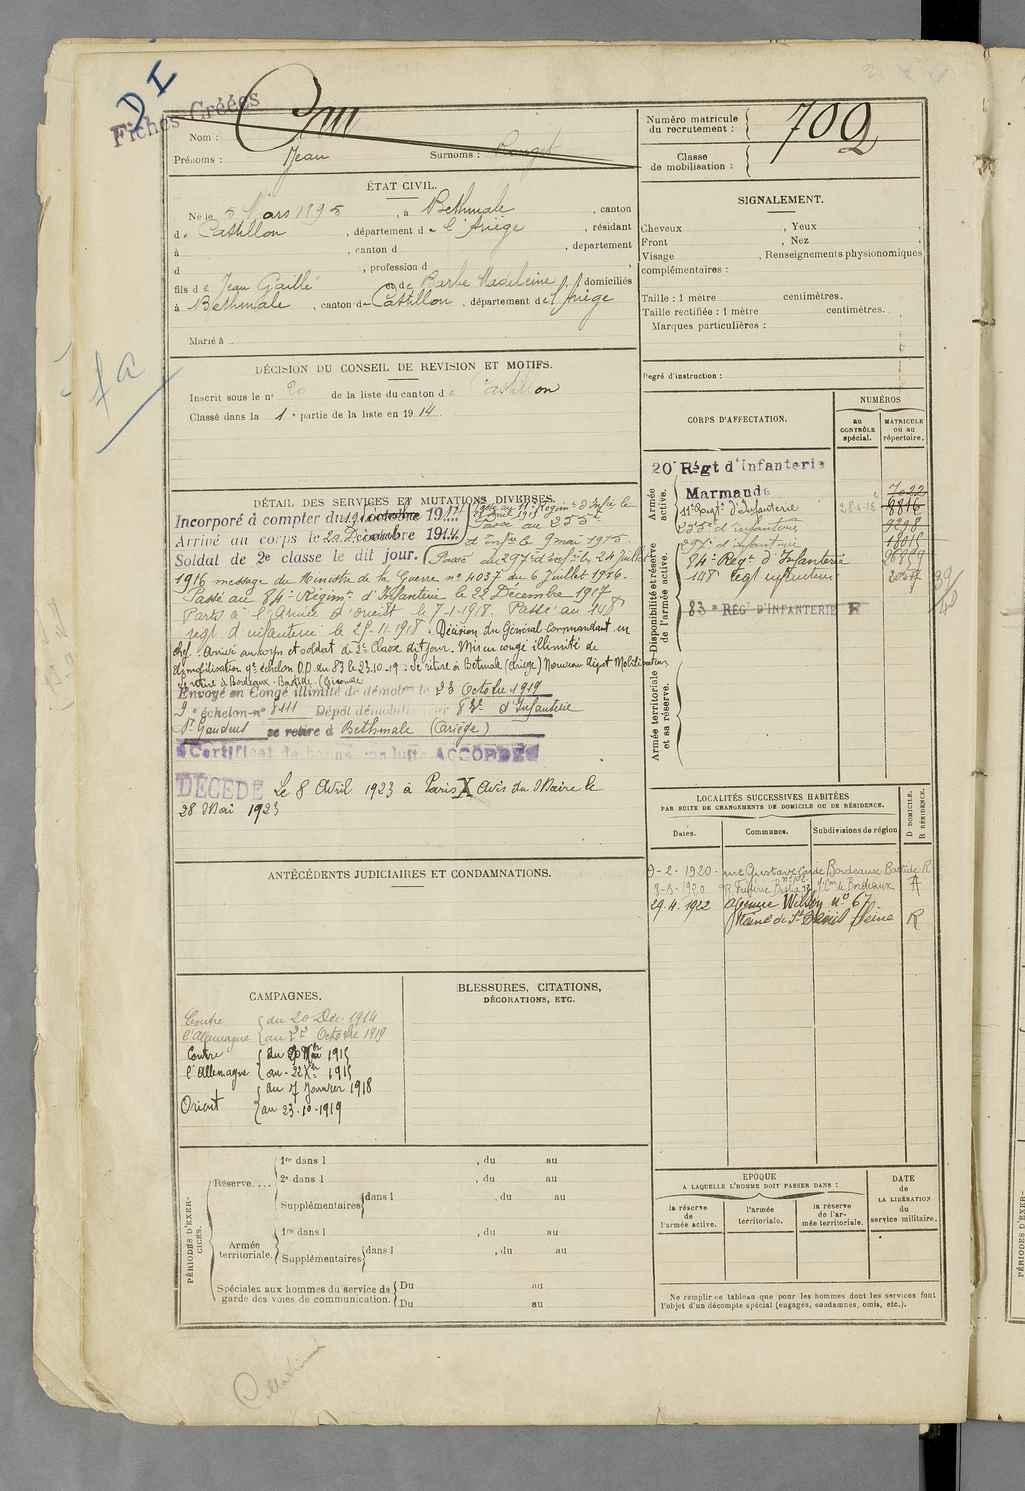 DI
Fiches Créées
Nom :
Prénoms : Jean Surnoms :
Numéro matricule du recrutement : 702
Classe de mobilisation :
ÉTAT CIVIL.
Né le 5 Mars 1895, à Bethmale, canton
de Castillon, département de l'Ariège, résidant
à , canton d , département
d , profession d ,
fils de Jean Gaillé et de Barbe Madeleine, domiciliés
à Bethmale, canton de Castillon, département de l'Ariège
Marié à
SIGNALEMENT.
Cheveux , Yeux ,
Front , Nez ,
Visage , Renseignements physionomiques
complémentaires :
Taille : 1 mètre centimètres.
Taille rectifiée : 1 mètre centimètres.
Marques particulières :
Degré d'instruction :
DÉCISION DU CONSEIL DE REVISION ET MOTIFS.
Inscrit sous le n° 20 de la liste du canton de Castillon
Classé dans la 1e partie de la liste en 1914.
DÉTAIL DES SERVICES ET MUTATIONS DIVERSES.
Incorporé à compter du 19
Arrivé au corps le 1914
Soldat de 2e classe le dit jour.
Passé au 11e Régiment d'Infie le
Passé au 255e
d'Infie le 9 mai 1915.
Passé au 297e d'infie le 24 Juillet
1916 message du Ministre de la Guerre n° 4037 du 6 Juillet 1916.
Passé au 84e Régimt d'Infanterie le 22 Décembre 1917
Parti à l'Armée d'orient le 7-1-1918. Passé au 148
regt d'infanterie le 25-11-1918. Décision du Général Commandant en
chef. Arrivé au corps et soldat de 2e Classe dit jour. Mis en congé illimité de
démobilisation 9e échelon D.D. du 83 le 23.10.19 : Se retire à Betmale (Ariège) Nouveau dépôt Mobilisateur
Se retire à Bordeaux-Bastide. (Gironde
Envoyé en Congé illimité de démobon le 23 Octobre 1919
9e échelon n° 8111 Dépôt démobilisateur 83e d'Infanterie
St Gaudens se retire à Bethmale (Ariège)
Certificat de bonne conduite ACCORDÉ
DÉCÉDÉ Le 8 Avril 1923 à Paris X Avis du Maire le
28 Mai 1923
CORPS D'AFFECTATION.
NUMÉROS
au CONTRÔLE spécial.
MATRICULE ou au répertoire.
Armée active.
Disponibilité et réserve de l'armée active.
Armée territoriale et sa réserve.
20e Régt d'Infanterie
Marmande 7022
11e Regt d'Infanterie 8816
255e d'infanterie 9298
297e d'infanterie
84e Régt d'Infanterie
148 regt infanterie
83e RÉGT D'INFANTERIE R
LOCALITÉS SUCCESSIVES HABITÉES
PAR SUITE DE CHANGEMENTS DE DOMICILE OU DE RÉSIDENCE.
Dates. Communes. Subdivisions de région
D DOMICILE. R RÉSIDENCE.
9-2-1920 rue Gustave Bordeaux Bastide R
8-5-1920 Bordeaux
29.4.1922 Avenue Wilson n° 67
Plaine de St Denis Seine R
ANTÉCÉDENTS JUDICIAIRES ET CONDAMNATIONS.
CAMPAGNES.
Contre du 20 Déc. 1914
l'Allemagne au Octobre 1919
Contre
l'Allemagne
Orient du 7 Janvier 1918
au 23-10-1919
BLESSURES, CITATIONS,
DÉCORATIONS, ETC.
PÉRIODES D'EXERCICES.
Réserve.... 1re dans l , du au
2e dans l , du au
Supplémentaires dans l , du au
Armée territoriale. 1re dans l , du au
Supplémentaires dans l , du au
Spéciales aux hommes du service de garde des voies de communication. Du au
Du au
EPOQUE
A LAQUELLE L'HOMME DOIT PASSER DANS :
la réserve de l'armée active.
l'armée territoriale.
la réserve de l'armée territoriale.
DATE de LA LIBÉRATION du service militaire.
Ne remplir ce tableau que pour les hommes dont les services font
l'objet d'un décompte spécial (engagés, condamnés, omis, etc.).